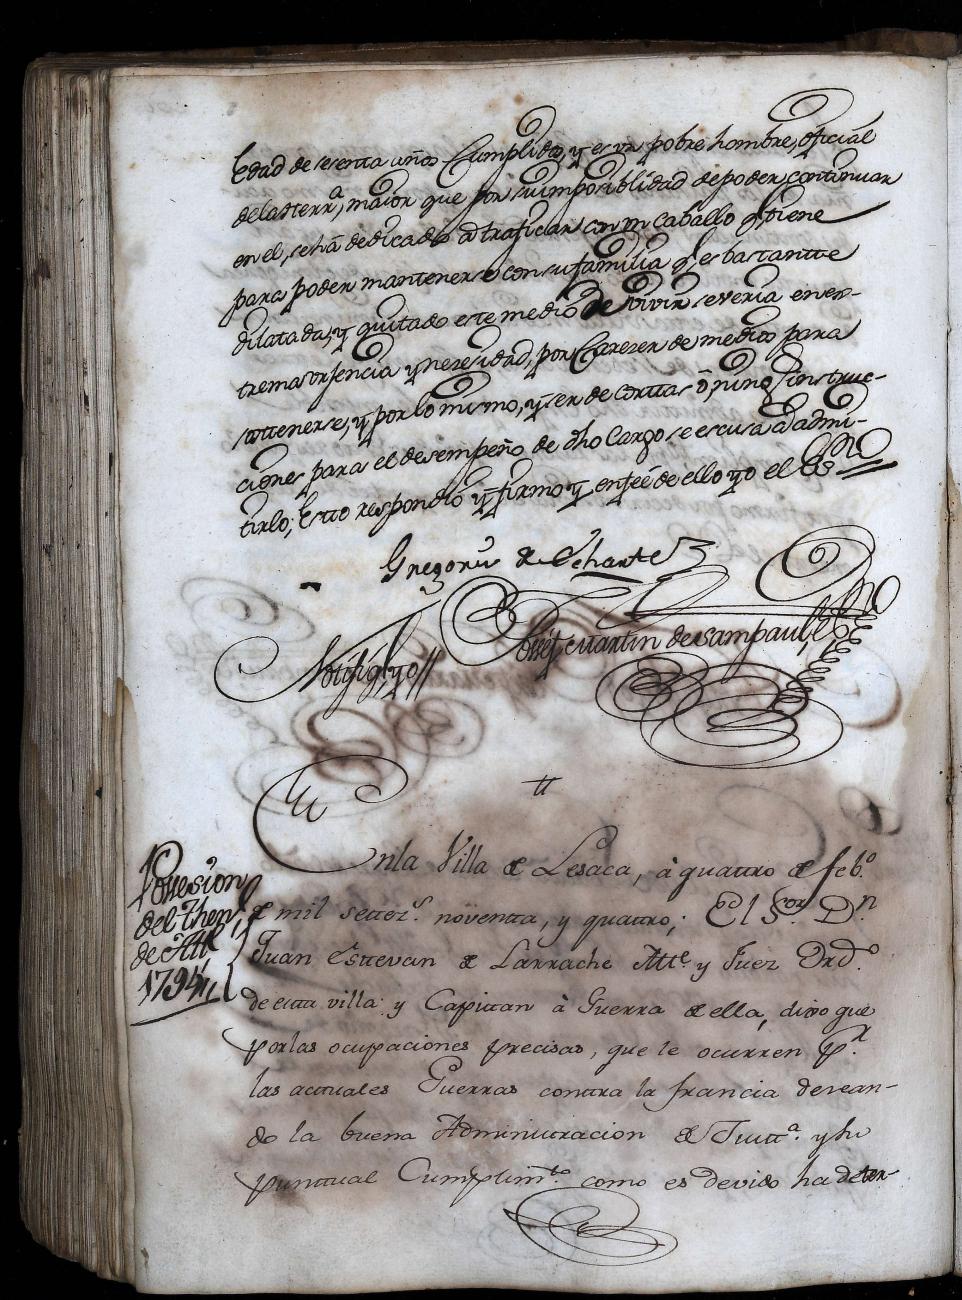 Edad de sesenta años Cumplidos, y es un pobre hombre, oficial
de la sterrª, maior que por su imposiblidad de poder continuar
en el, se hà dedicado à traficiar con un caballo q tiene
para poder mantenerse con su familia q es bastantte
dilatada, y quitado este medio de vivir se veria en es-
trema y nezesidad, por Carezer de medios para
sottenerse, y por lo mismo, y ser de corttas ô, ning.s instruc-
ciones para el desempeño de dho Cargo se escusa à admi-
tirlo; Estto respondiò y firmo y en feé de ello yo el Es.no
Gregorio de Echarte
Notifiq.lo yo // Josef Martin de Sampaul, Es.no
tt
En la Villa de Lesaca, à quattro de feb.º
Possesion
del Then.te
de Alle
1794 //
de mil settez.s noventta, y quattro; El S.or D.n
Juan Esttevan de Larrache Alle. y Juez Ord.º
de estta villa y Capitan à Guerra de ella, dixo que
por las ocupaciones precisas, que le ocurren p.r
las actuales Guerras contra la francia desean-
do la buena Administracion de Justt.ª y su
punttual Cumplim.to como es devido ha deter-